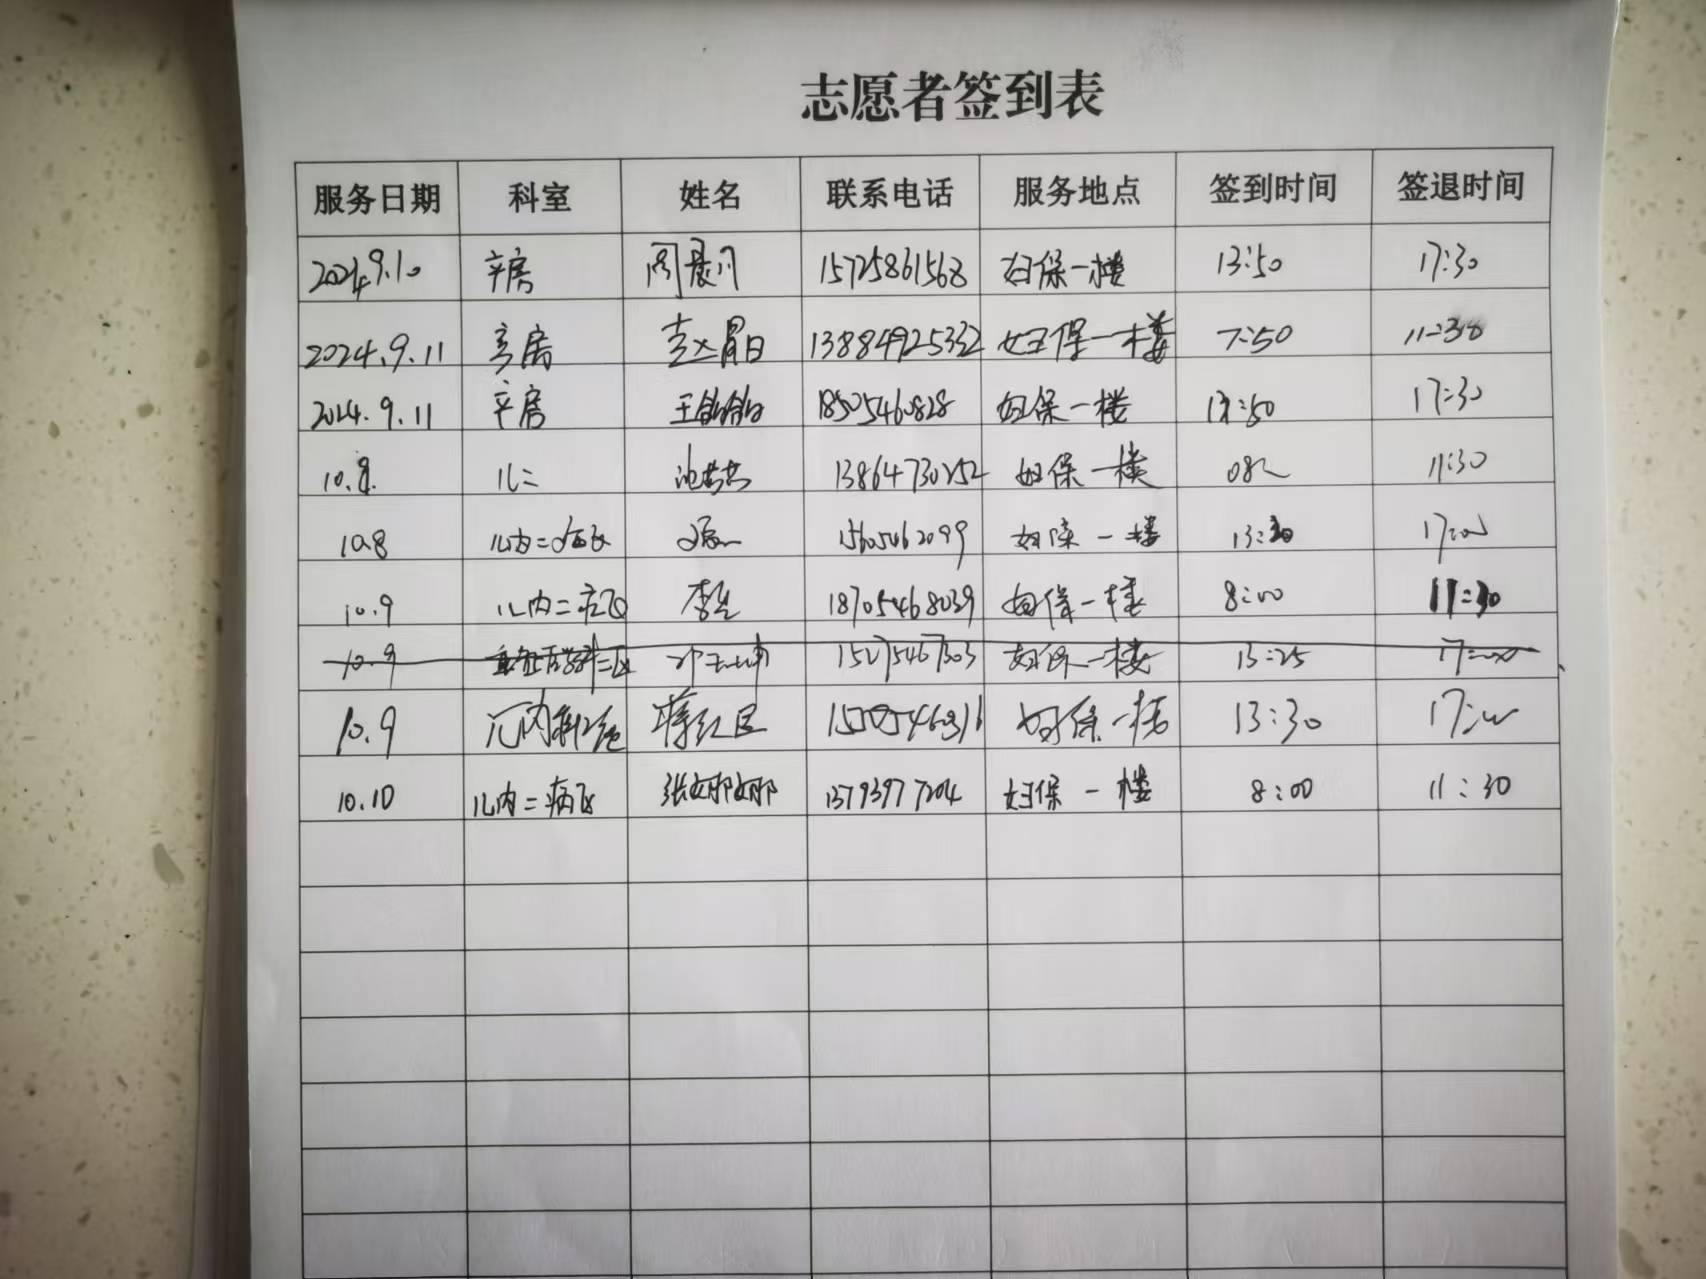 志愿者签到表
服务日期 科室 姓名 联系电话 服务地点 签到时间 签退时间
2024.9.10 产房 周晨 15725861568 妇保一楼 13:50 17:30
2024.9.11 产房 13884925332 妇保一楼 7:50 11:30
2024.9.11 产房 王 18505460828 妇保一楼 13:50 17:30
10.8 儿二 13864730252 妇保一楼 11:30
10.8 儿内二病区 15605462099 妇保一楼 13:30 17:00
10.9 儿内二病区 李 18705468039 妇保一楼 8:00 11:30
10.9 妇保一楼 13:25 17:00
10.9 儿内科 蒋红 妇保一楼 13:30 17:00
10.10 儿内二病区 张娜娜 13793977204 妇保一楼 8:00 11:30